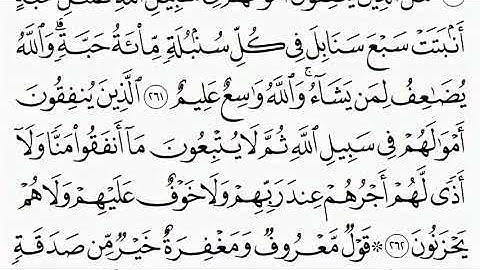 مَّثَلُ ٱلَّذِينَ يُنفِقُونَ أَمْوَٰلَهُمْ فِى سَبِيلِ ٱللَّهِ كَمَثَلِ حَبَّةٍ
أَنۢبَتَتْ سَبْعَ سَنَابِلَ فِى كُلِّ سُنۢبُلَةٍ مِّا۟ئَةُ حَبَّةٍ ۗ وَٱللَّهُ
يُضَٰعِفُ لِمَن يَشَآءُ ۗ وَٱللَّهُ وَٰسِعٌ عَلِيمٌ ٢٦١ ٱلَّذِينَ يُنفِقُونَ
أَمْوَٰلَهُمْ فِى سَبِيلِ ٱللَّهِ ثُمَّ لَا يُتْبِعُونَ مَآ أَنفَقُوا۟ مَنًّا وَلَآ
أَذًى لَّهُمْ أَجْرُهُمْ عِندَ رَبِّهِمْ وَلَا خَوْفٌ عَلَيْهِمْ وَلَا هُمْ
يَحْزَنُونَ ٢٦٢ * قَوْلٌ مَّعْرُوفٌ وَمَغْفِرَةٌ خَيْرٌ مِّن صَدَقَةٍ